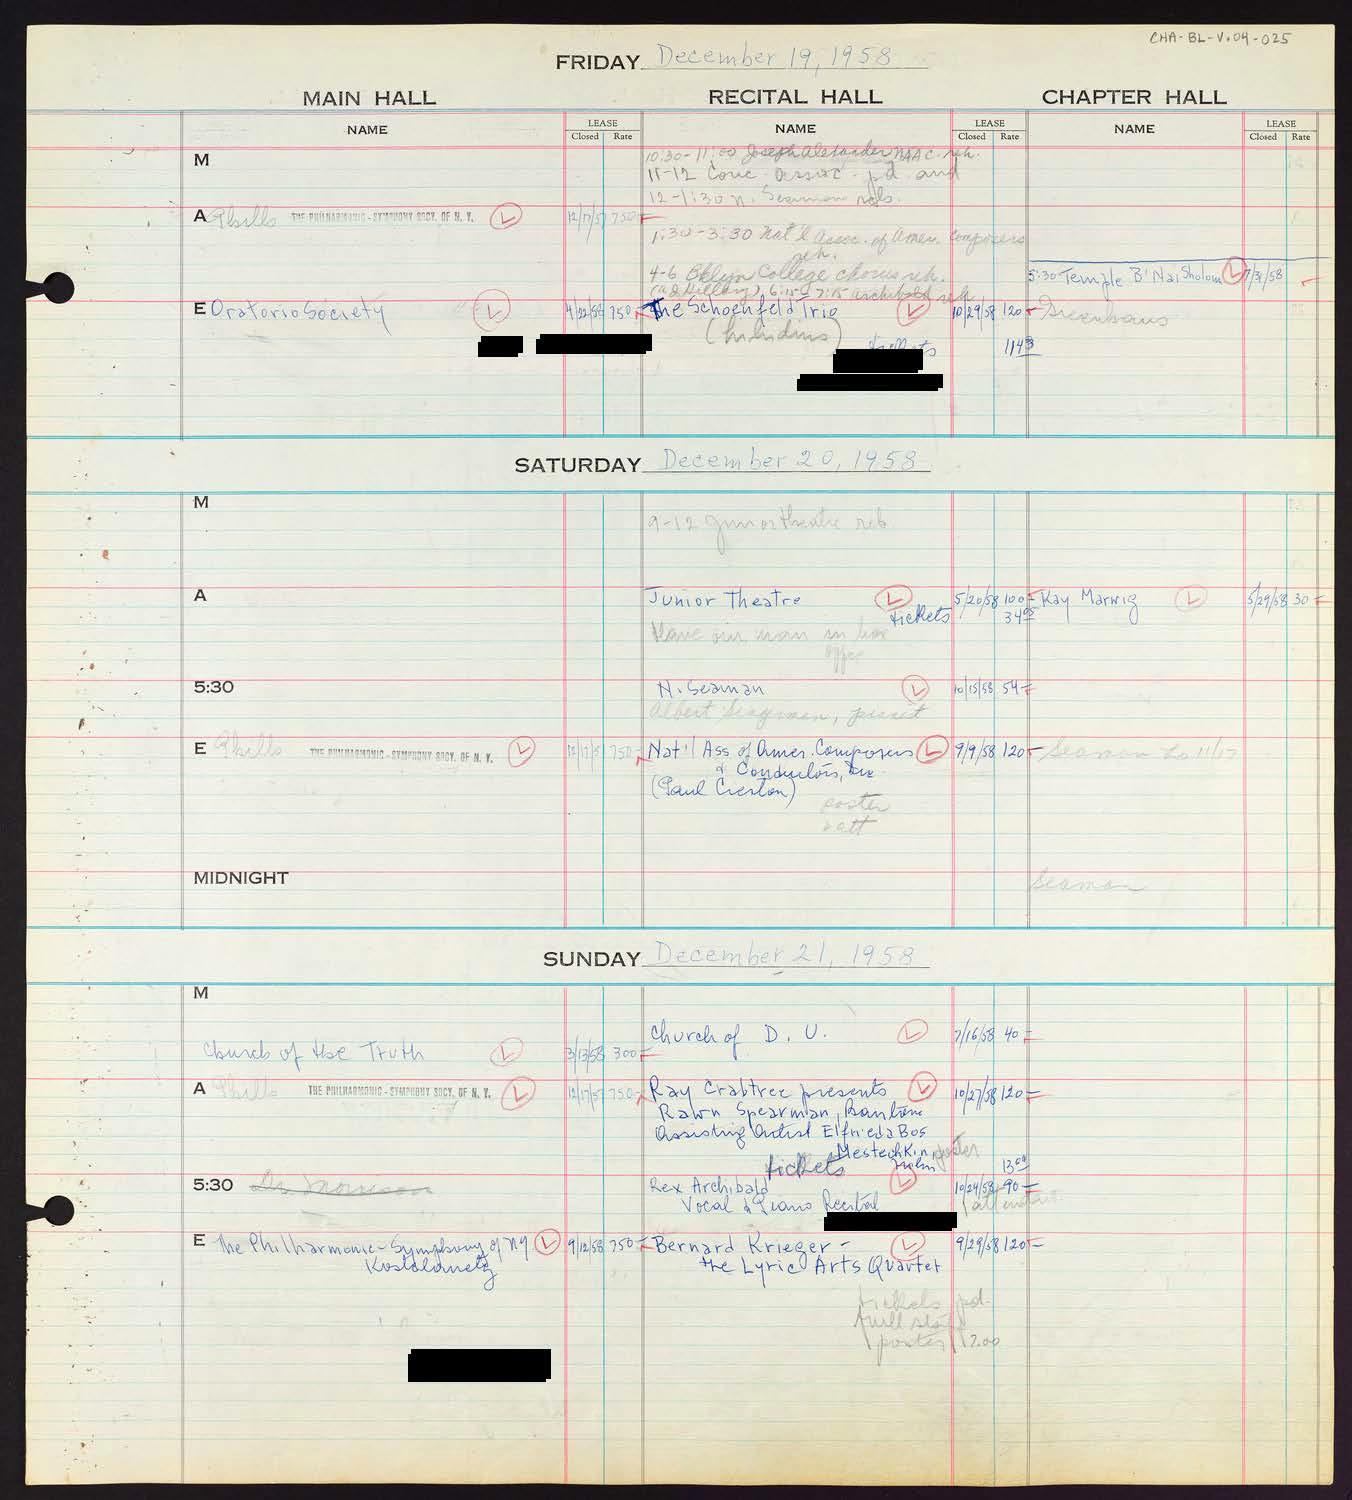 CHA-BL-V.04-025
FRIDAY December 19, 1958
MAIN HALL RECITAL HALL CHAPTER HALL
NAME LEASE Closed Rate NAME LEASE Closed Rate NAME LEASE Closed Rate
M
10:30-11:00 Joseph Alexander NAAC reh.
11-12 Conc. assoc. pd. and
12-1:30 N. Seaman
A THE PHILHARMONIC-SYMPHONY SOCY. OF N. Y. L 12/17/57 750
1:30-3:30 Nat'l Assoc. of Amer. Composers
reh.
4-6 Bklyn College chorus reh.
6:15-7:15 archibald reh
5:30 Temple B'Nai Sholom L 7/31/58
E Oratorio Society L 4/22/58 750 The Schoenfeld Trio L 10/29/58 120 Greenhaus
tickets 114
SATURDAY December 20, 1958
M
9-12 Junior theatre reh
A Junior Theatre L 5/20/58 100 Kay Marwig L 5/29/58 30
tickets 34
Have our man in box
office
5:30 N. Seaman L 10/15/58 54
Albert pianist
E THE PHILHARMONIC-SYMPHONY SOCY. OF N. Y. L 750 Nat'l Ass of Amer. Composers L 9/9/58 120 Seaman to 11/17
& Conductors, Inc
(Paul Creston)
poster
att
MIDNIGHT Seaman
SUNDAY December 21, 1958
M
Church of D. U. L 7/16/58 40
Church of the Truth L 3/13/58 300
A THE PHILHARMONIC-SYMPHONY SOCY. OF N. Y. L 12/17/57 750 Ray Crabtree presents L 10/27/58 120
Rawn Spearman, Baritone
Assisting Artist Elfrieda Bos
Mestechkin poster
tickets 13
5:30 Dr. Morrison Rex Archibald L 10/24/58 90
Vocal & Piano Recital
E The Philharmonic-Symphony of NY L 9/12/58 750 Bernard Krieger - L 9/29/58 120
Kostelanetz the Lyric Arts Quartet
tickets pd.
full
poster 12.00